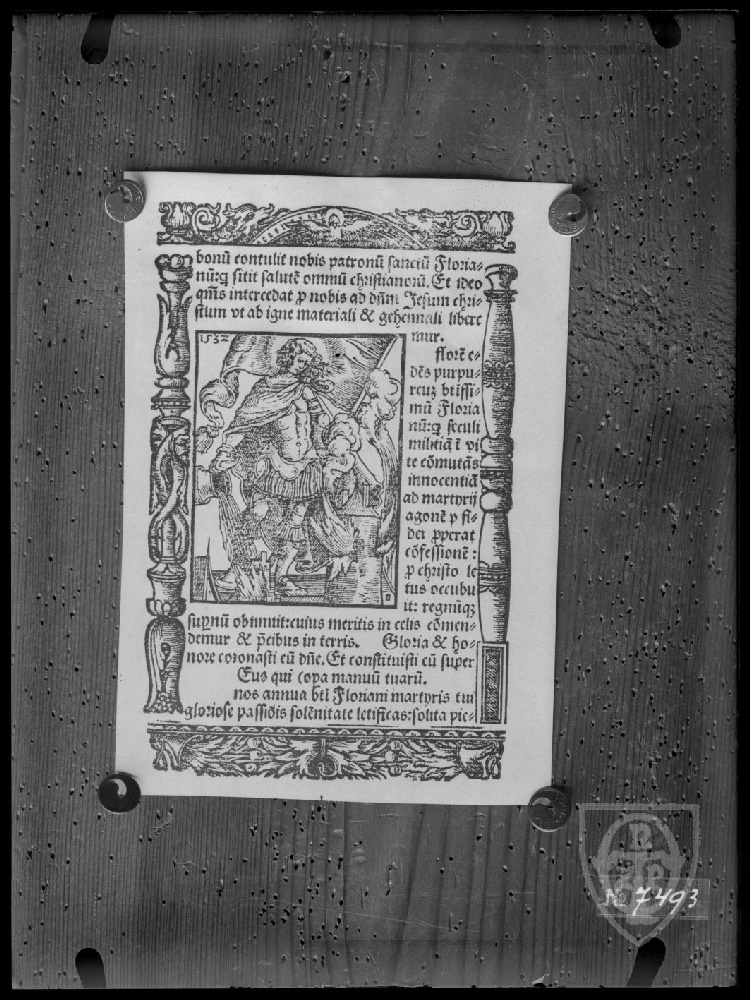 bonū contulit nobis patronū sanctū Floria-
nū:q̄ sitit salutē omniū christianorū. Et ideo
qm̄s intercedat p nobis ad dūm Jesum chri-
stum vt ab igne materiali & gehennali libere
mur.
1532
florē e-
dēs purpu-
reuꝫ btissi-
mū Floria
nū:q̄ seculi
militiā ī vi
te cōmutās
innocentiā
ad martyrij
agonē p fi-
dei pperat
cōfessionē :
p christo le
tus occubu
it: regnūqꝫ
supnū obtinuit:cuius meritis in celis cōmen-
demur & p̄cibus in terris. Gloria & ho-
nore coronasti eū dn̄e. Et constituisti eū super
Eus qui copa manuū tuarū.
nos annua btī Floriani martyris tui
gloriose passiōis solēnitate letificas:solita pie-
R
P R
N 7493